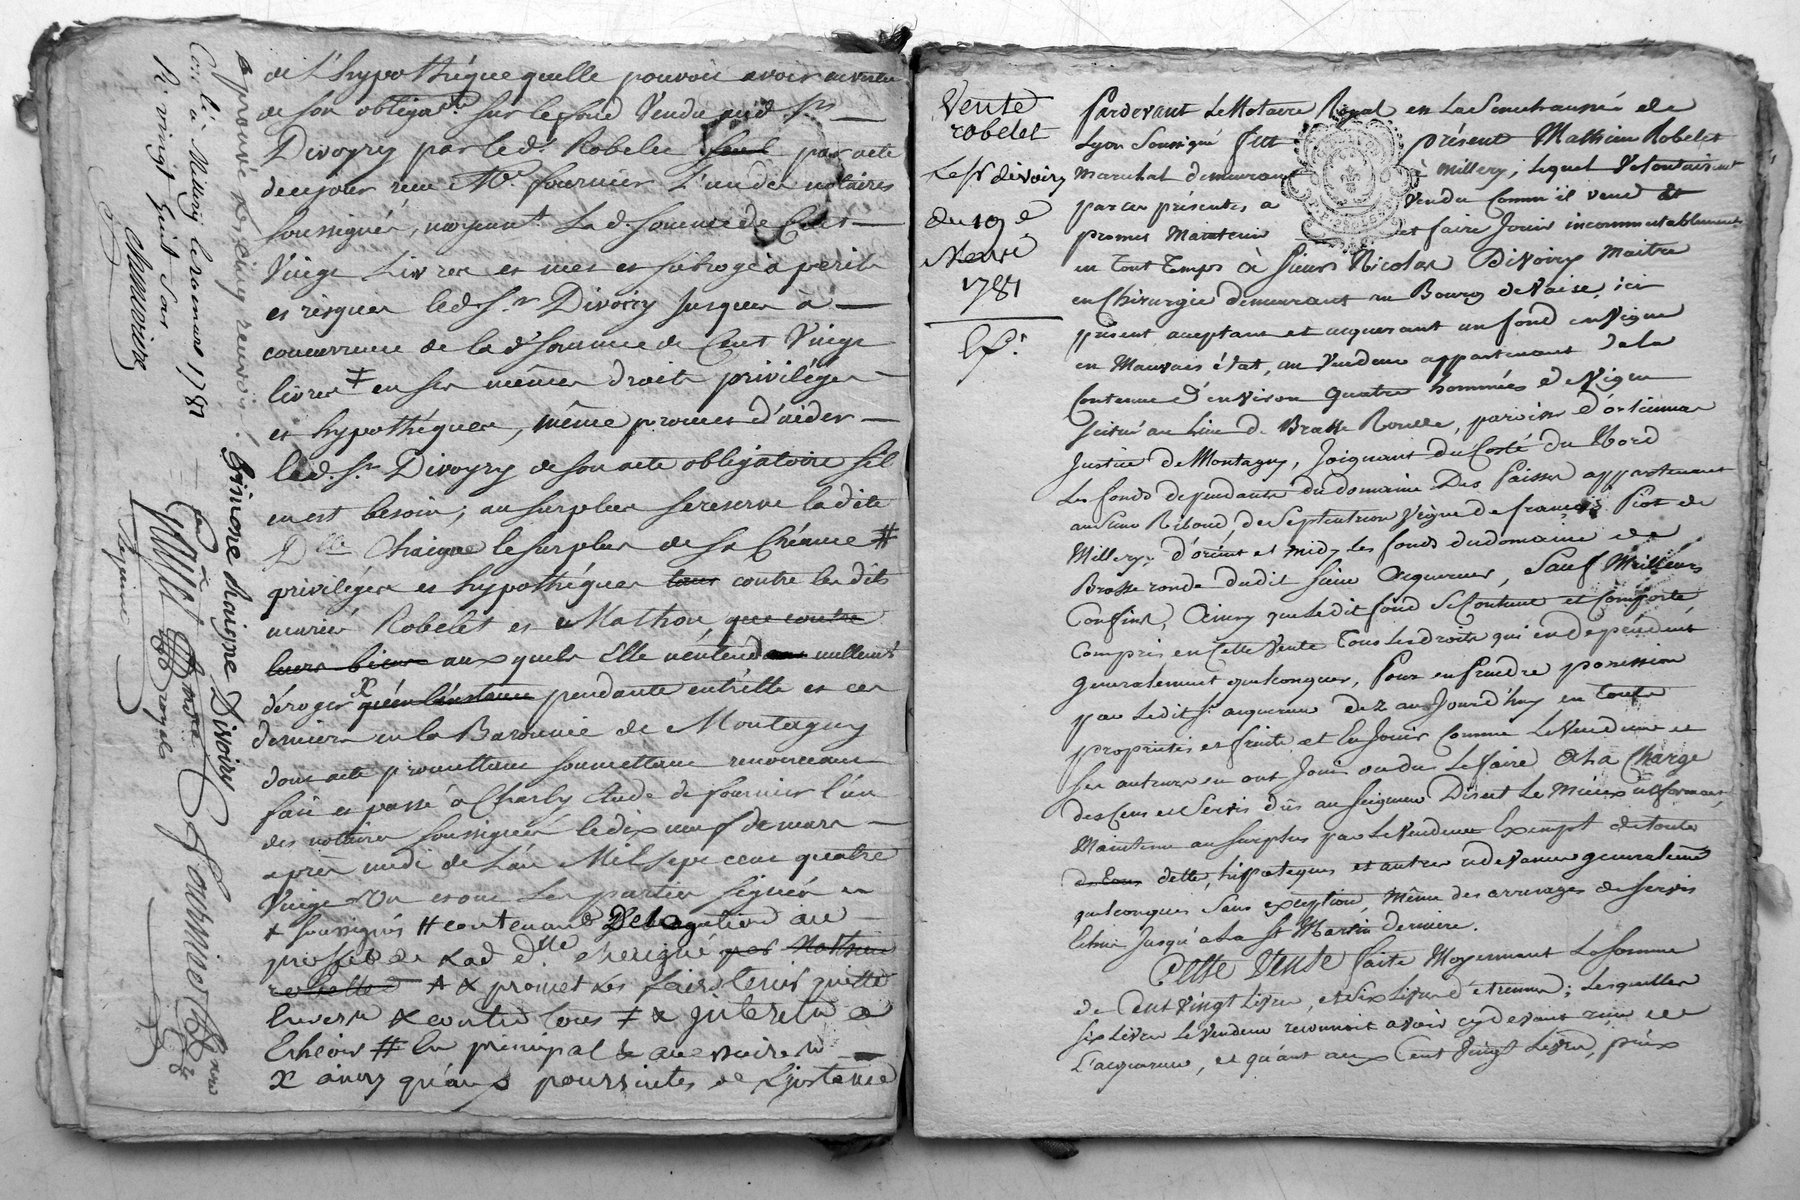 de L'hypothéque quelle pouvoit avoir en vertu
de son obligaon. sur le fond Vendu aud. Sr.
Divoyry par led. Robelet par acte
de ce jour reçu Me. fournier L'un des notaires
soussignés, moyent. lad. somme de Cent
Vingt Livres et met et subroge à perils
et risques led. Sr. Divoiry jusques à
concurrence de lad. somme de Cent Vingt
livres ‡ en ses mêmes droits privilèges
et hypothéques, même promet d'aider
led. Sr. Divoyry de son acte obligatoire s'il
en est besoin; au surplus se reserve ladite
Dlle. Chaigne le surplus de sa Créance #
privilèges et hypothéques tous contre les dits
mariés Robelet et Mathon que contre
leurs biens auxquels Elle n'entend nullemt.
déroger x qu'en l'instance pendante entr'elle et ces
derniers en la Baronnie de Montagny
dont acte promettant soumettant renonceant
fait et passé à Charly Etude de fournier l'un
des notaires soussignés le dix neuf de mars
après midi de l'an Mil sept cent quatre
Vingt Un et ont Les parties signées et
x soussignés # contenant Delegation au
proffit de Lad. dlle. cheigne par Mathieu
robellet x promet Les faire tenir quitte
Envers x contre tous ‡ x jnterets a
Echeoir # En principal & accessoires
X ainsy qu'aux poursuites de L'jnstance
approuvé Les cinq renvois. Éléonore chaigne Divoiry
Con.lé à Millery le 20 mars 1781
R. vingt huit sols
Fournier
Vente
robelet
Le Sr. divoiry
du 19 e
Mars
1781
Pardevant Le Notaire Royal en La Senechaussée de
Lyon Soussigné fut présent Mathieu Robelet
Marechal demeurant à Millery, lequel Volontairement
par ces présentes a Vendu Comme il vend et
promet Maintenir et faire Jouir incommutablement
en tout temps à Sieur Nicolas Divoiry Maitre
en Chirurgie demeurant au Bourg de Vaise, ici
présent acceptant et acquerant un fond en Vigne
en Mauvais état, au Vendeur appartenant de la
Contenue d'environ quatre hommées de Vigne
scitué au Lieu de Brosse Ronde, paroisse d'orlienas
Justice de Montagny, Joignant du Costé du Nord
Les fonds dependants du domaine Des Paisses appartenant
au Sieur Riboud, de Septentrion Vigne de françois Piot de
Millery, d'orient et midy Les fonds du domaine de
Brosse ronde dudit Sieur acquereur, Sauf Meilleurs
Confins, Ainsy que Ledit fond Se Contient et Comporte
Compris en Cette Vente Tous Les droits qui en dependent
generalement quelconques, Pour en prendre possession
par Ledit Sr. acquereur dez aujourd'huy en toute
proprieté et fruits et En Jouir Comme Le Vendeur et
Ses auteurs en ont Joui ou du Le faire à La Charge
des Cens et Servis dûs au Seigneur Direct Le Mieux informant,
Maintenu au surplus par Le Vendeur Exempt de toute
de tous dette, hipoteques et autres redevances generalement
quelconques Sans exception, Même des arrerages de Servis
Echus Jusqu'a La St. Martin derniere.
Cette Vente faite Moyennant La Somme
de Cent Vingt Livres, et Six Livres d'etrennes; Lesquelles
six Livres Le Vendeur reconnoit avoir cydevant reçu de
L'acquereur, et quant aux Cent Vingt Livres, prix